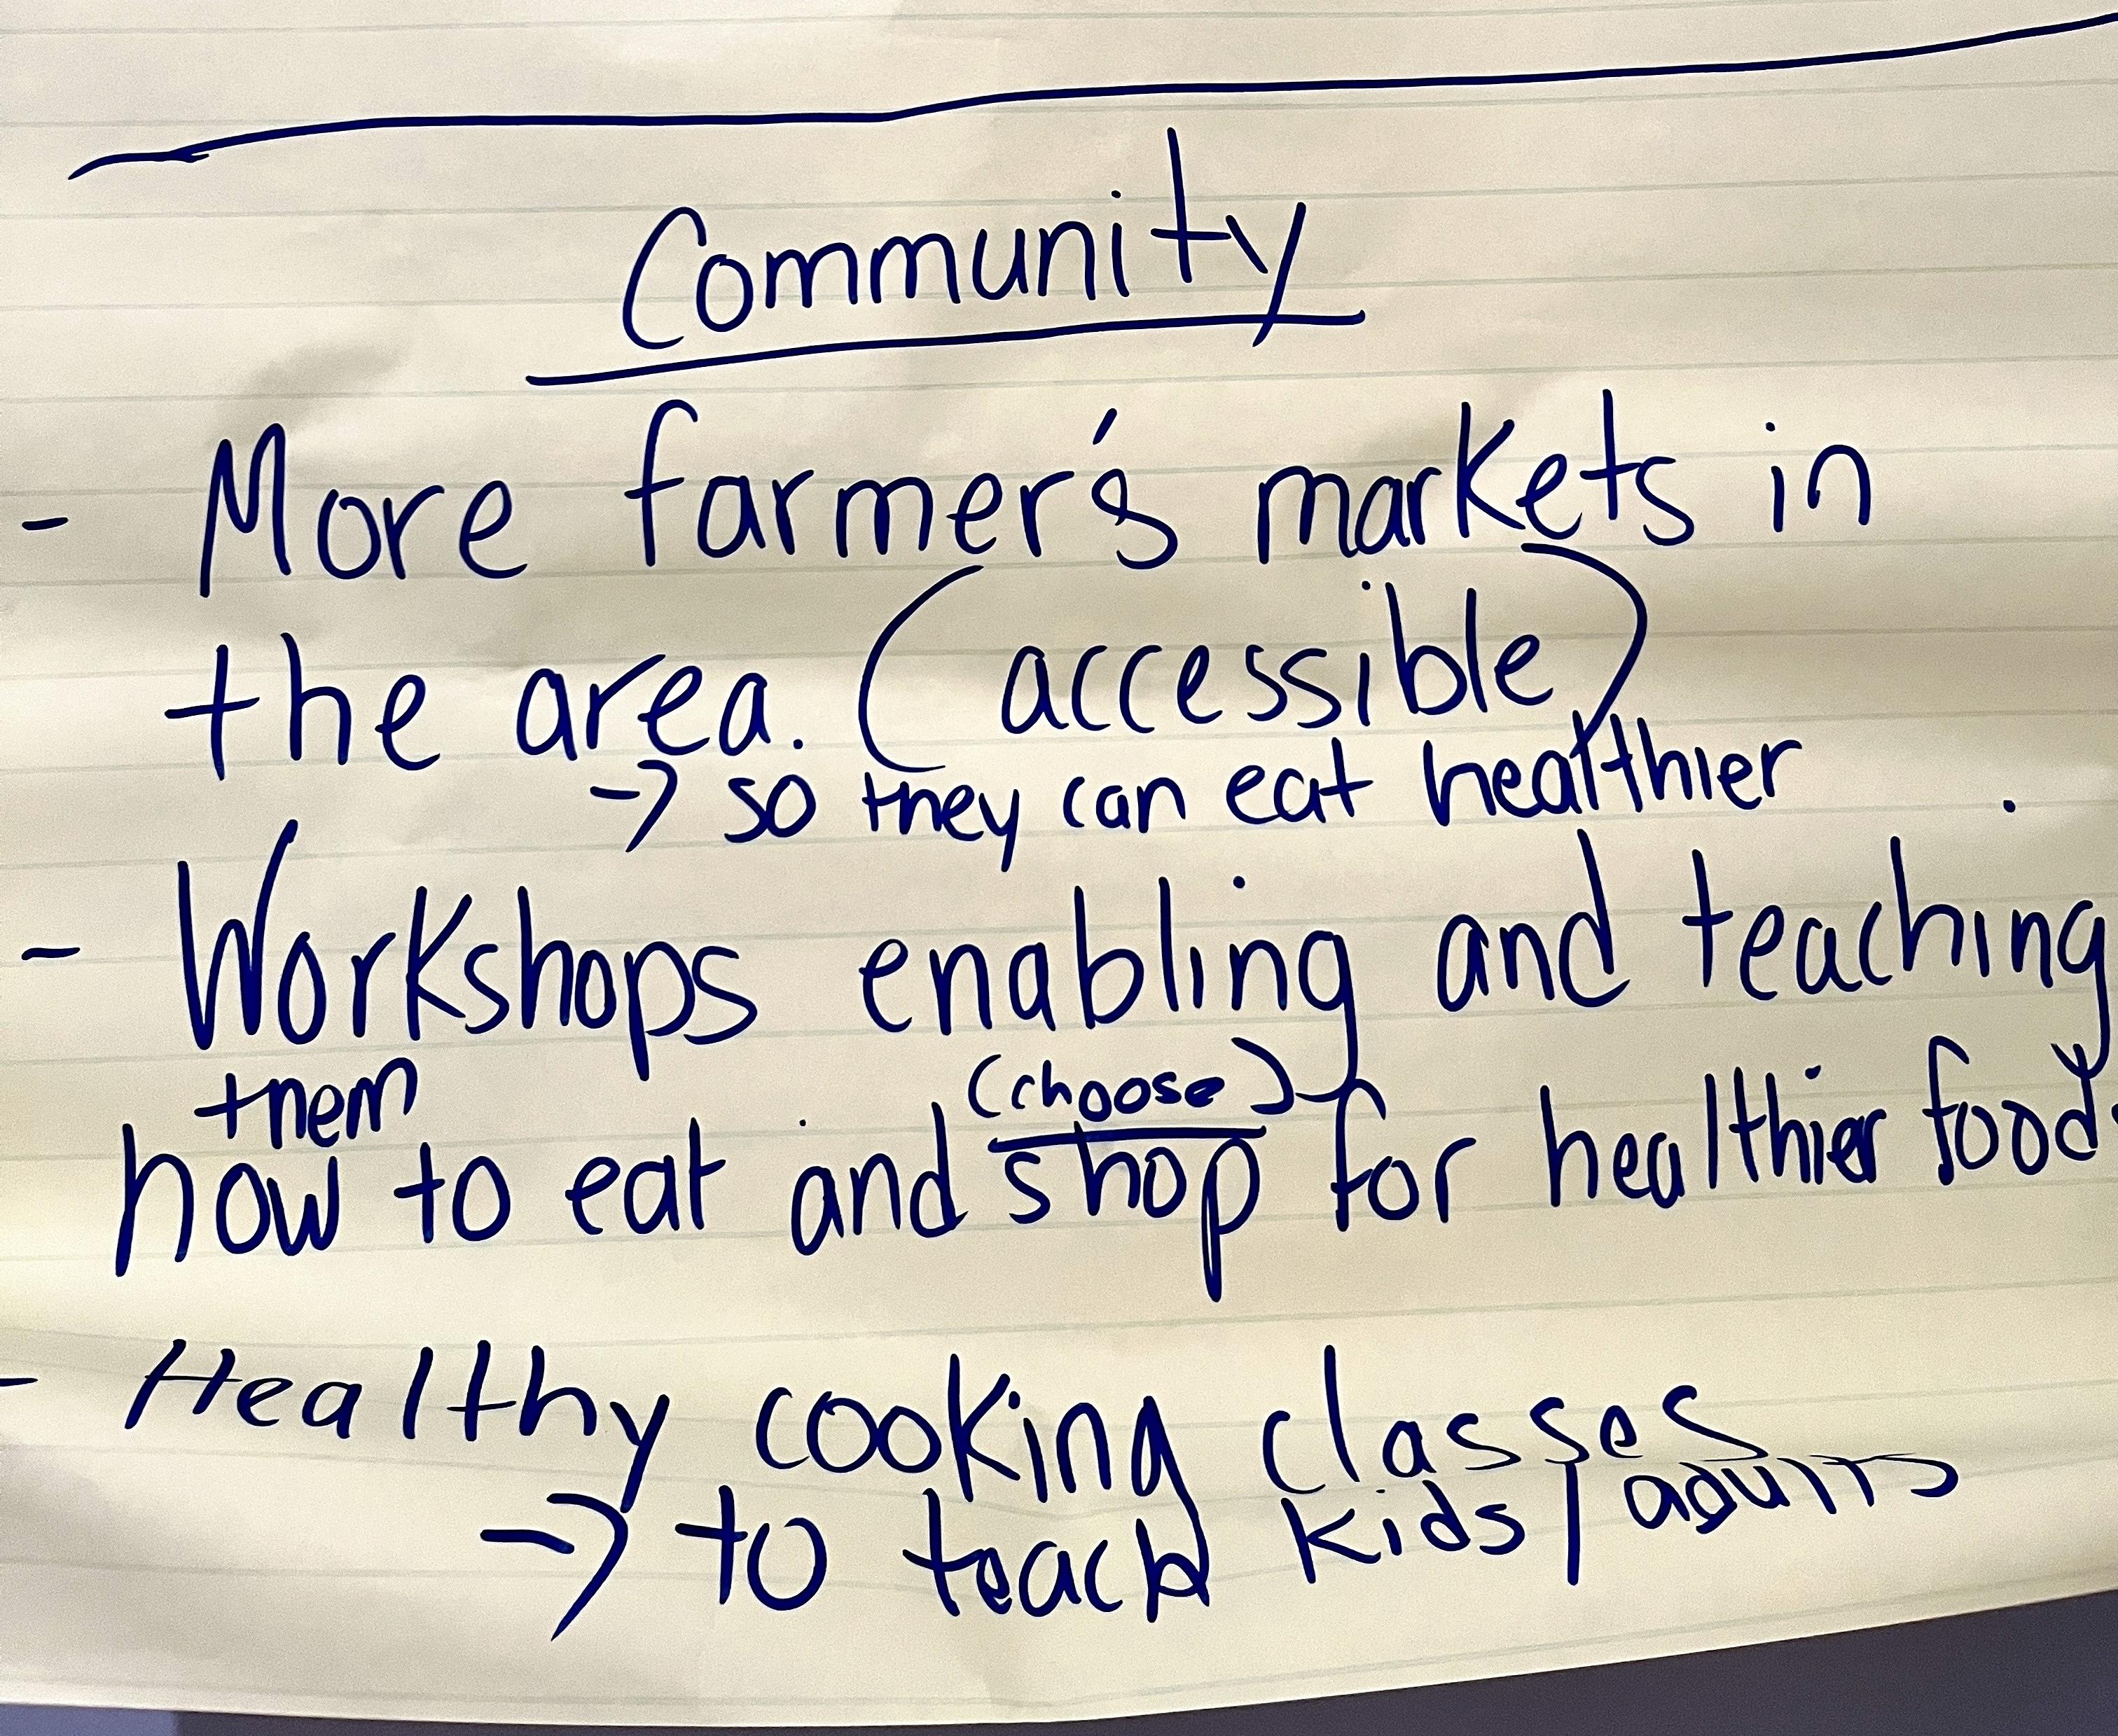 Community
- More farmer's markets in
the area. (accessible)
-> so they can eat healthier
- Workshops enabling and teaching
them (choose)
how to eat and shop for healthier food
- Healthy cooking classes
-> to teach kids/adults